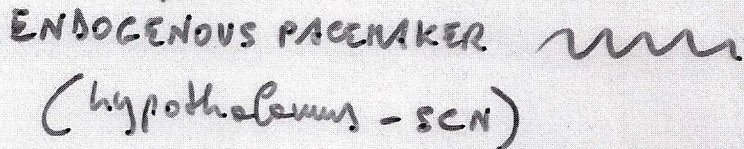 ENDOGENOUS PACEMAKER
(hypothalamus - SCN)